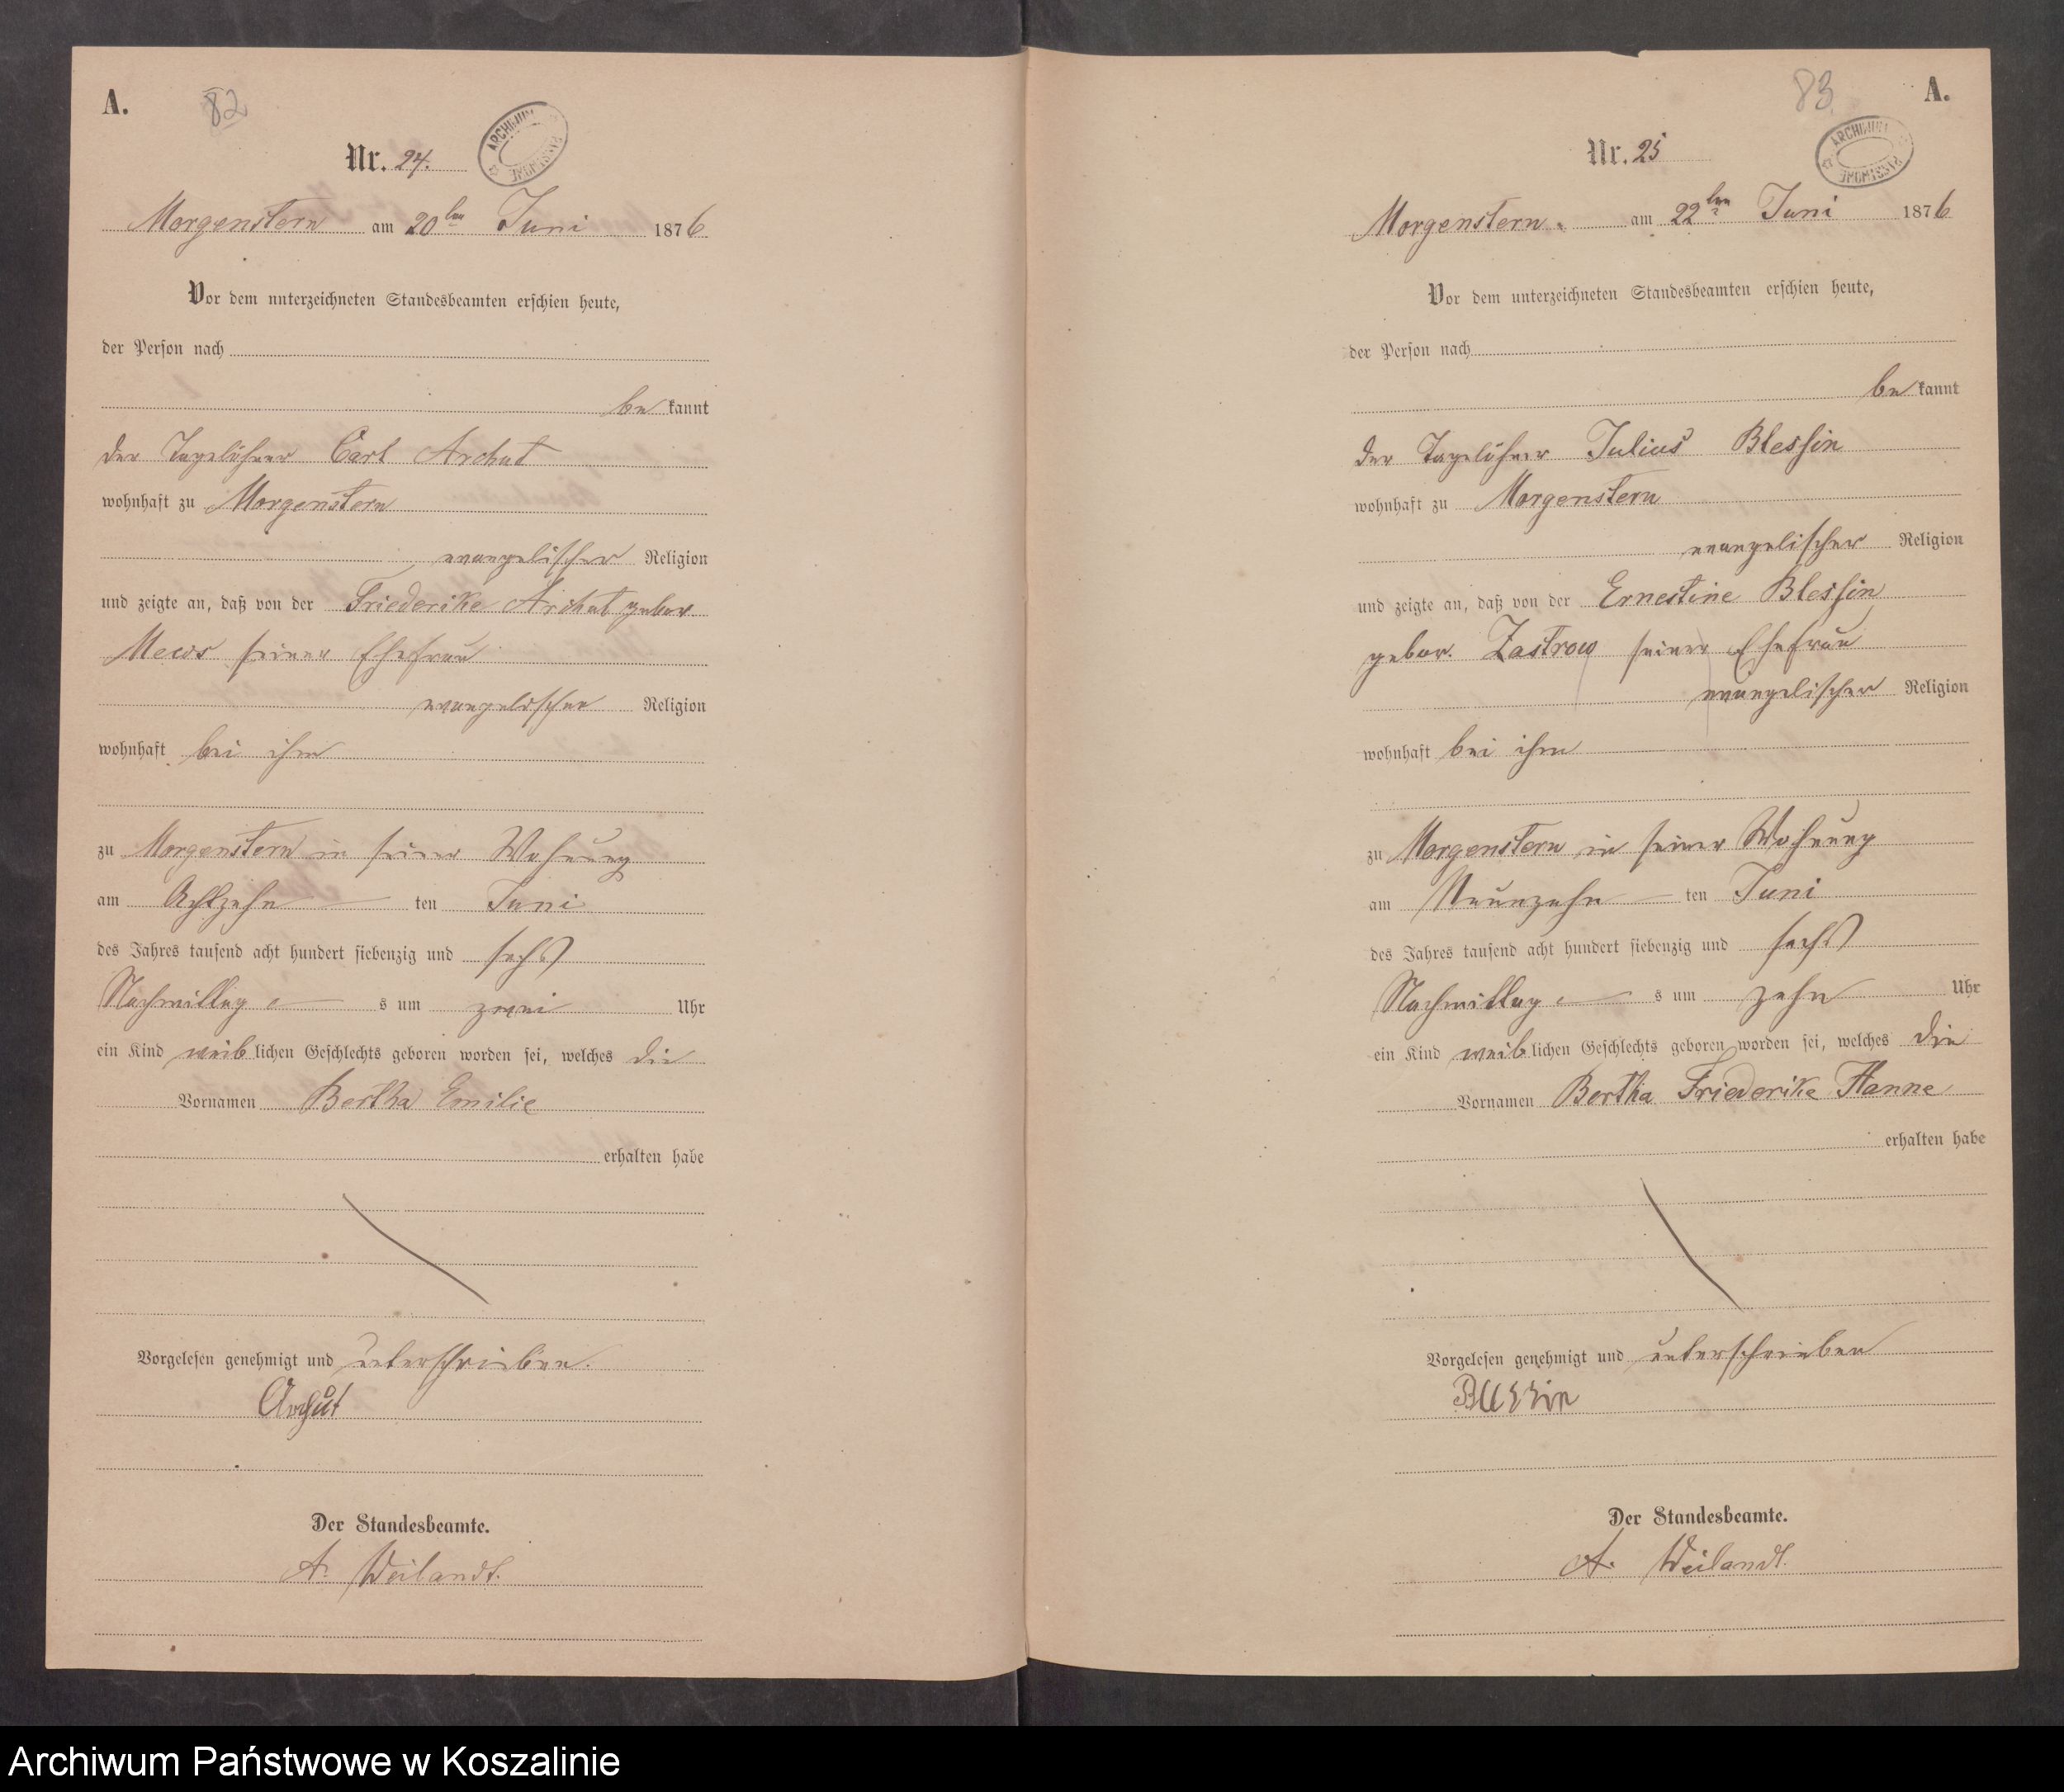 A.
82
Nr. 24.
ARCHIWUM PAŃSTWOWE
Morgenstern am 20ten Juni 1876
Vor dem unterzeichneten Standesbeamten erschien heute,
der Person nach
be kannt
der Tagelöhner Carl Archut
wohnhaft zu Morgenstern
evangelischer Religion
und zeigte an, daß von der Friederike Archut gebor
Mews seiner Ehefrau
evangelischer Religion
wohnhaft bei ihm
zu Morgenstern in seiner Wohnung
am Achtzehn ten Juni
des Jahres tausend acht hundert siebenzig und sechs
Nachmittag s um zwei Uhr
ein Kind weib lichen Geschlechts geboren worden sei, welches die
Vornamen Bertha Emilie
erhalten habe
Vorgelesen genehmigt und unterschrieben.
Archut
Der Standesbeamte.
A. Weilandt.
83
A.
Nr. 25
ARCHIWUM PAŃSTWOWE
Morgenstern. am 22ten Juni 1876
Vor dem unterzeichneten Standesbeamten erschien heute,
der Person nach
be kannt
der Tagelöhner Julius Blessin
wohnhaft zu Morgenstern
evangelischer Religion
und zeigte an, daß von der Ernestine Blessin
gebor. Zastrow seiner Ehefrau
evangelischer Religion
wohnhaft bei ihm
zu Morgenstern in seiner Wohnung
am Neunzehn ten Juni
des Jahres tausend acht hundert siebenzig und sechs
Nachmittag s um zehn Uhr
ein Kind weib lichen Geschlechts geboren worden sei, welches die
Vornamen Bertha Friederike Hanne
erhalten habe
Vorgelesen genehmigt und unterschrieben
Blessin
Der Standesbeamte.
A. Weilandt.
Archiwum Państwowe w Koszalinie